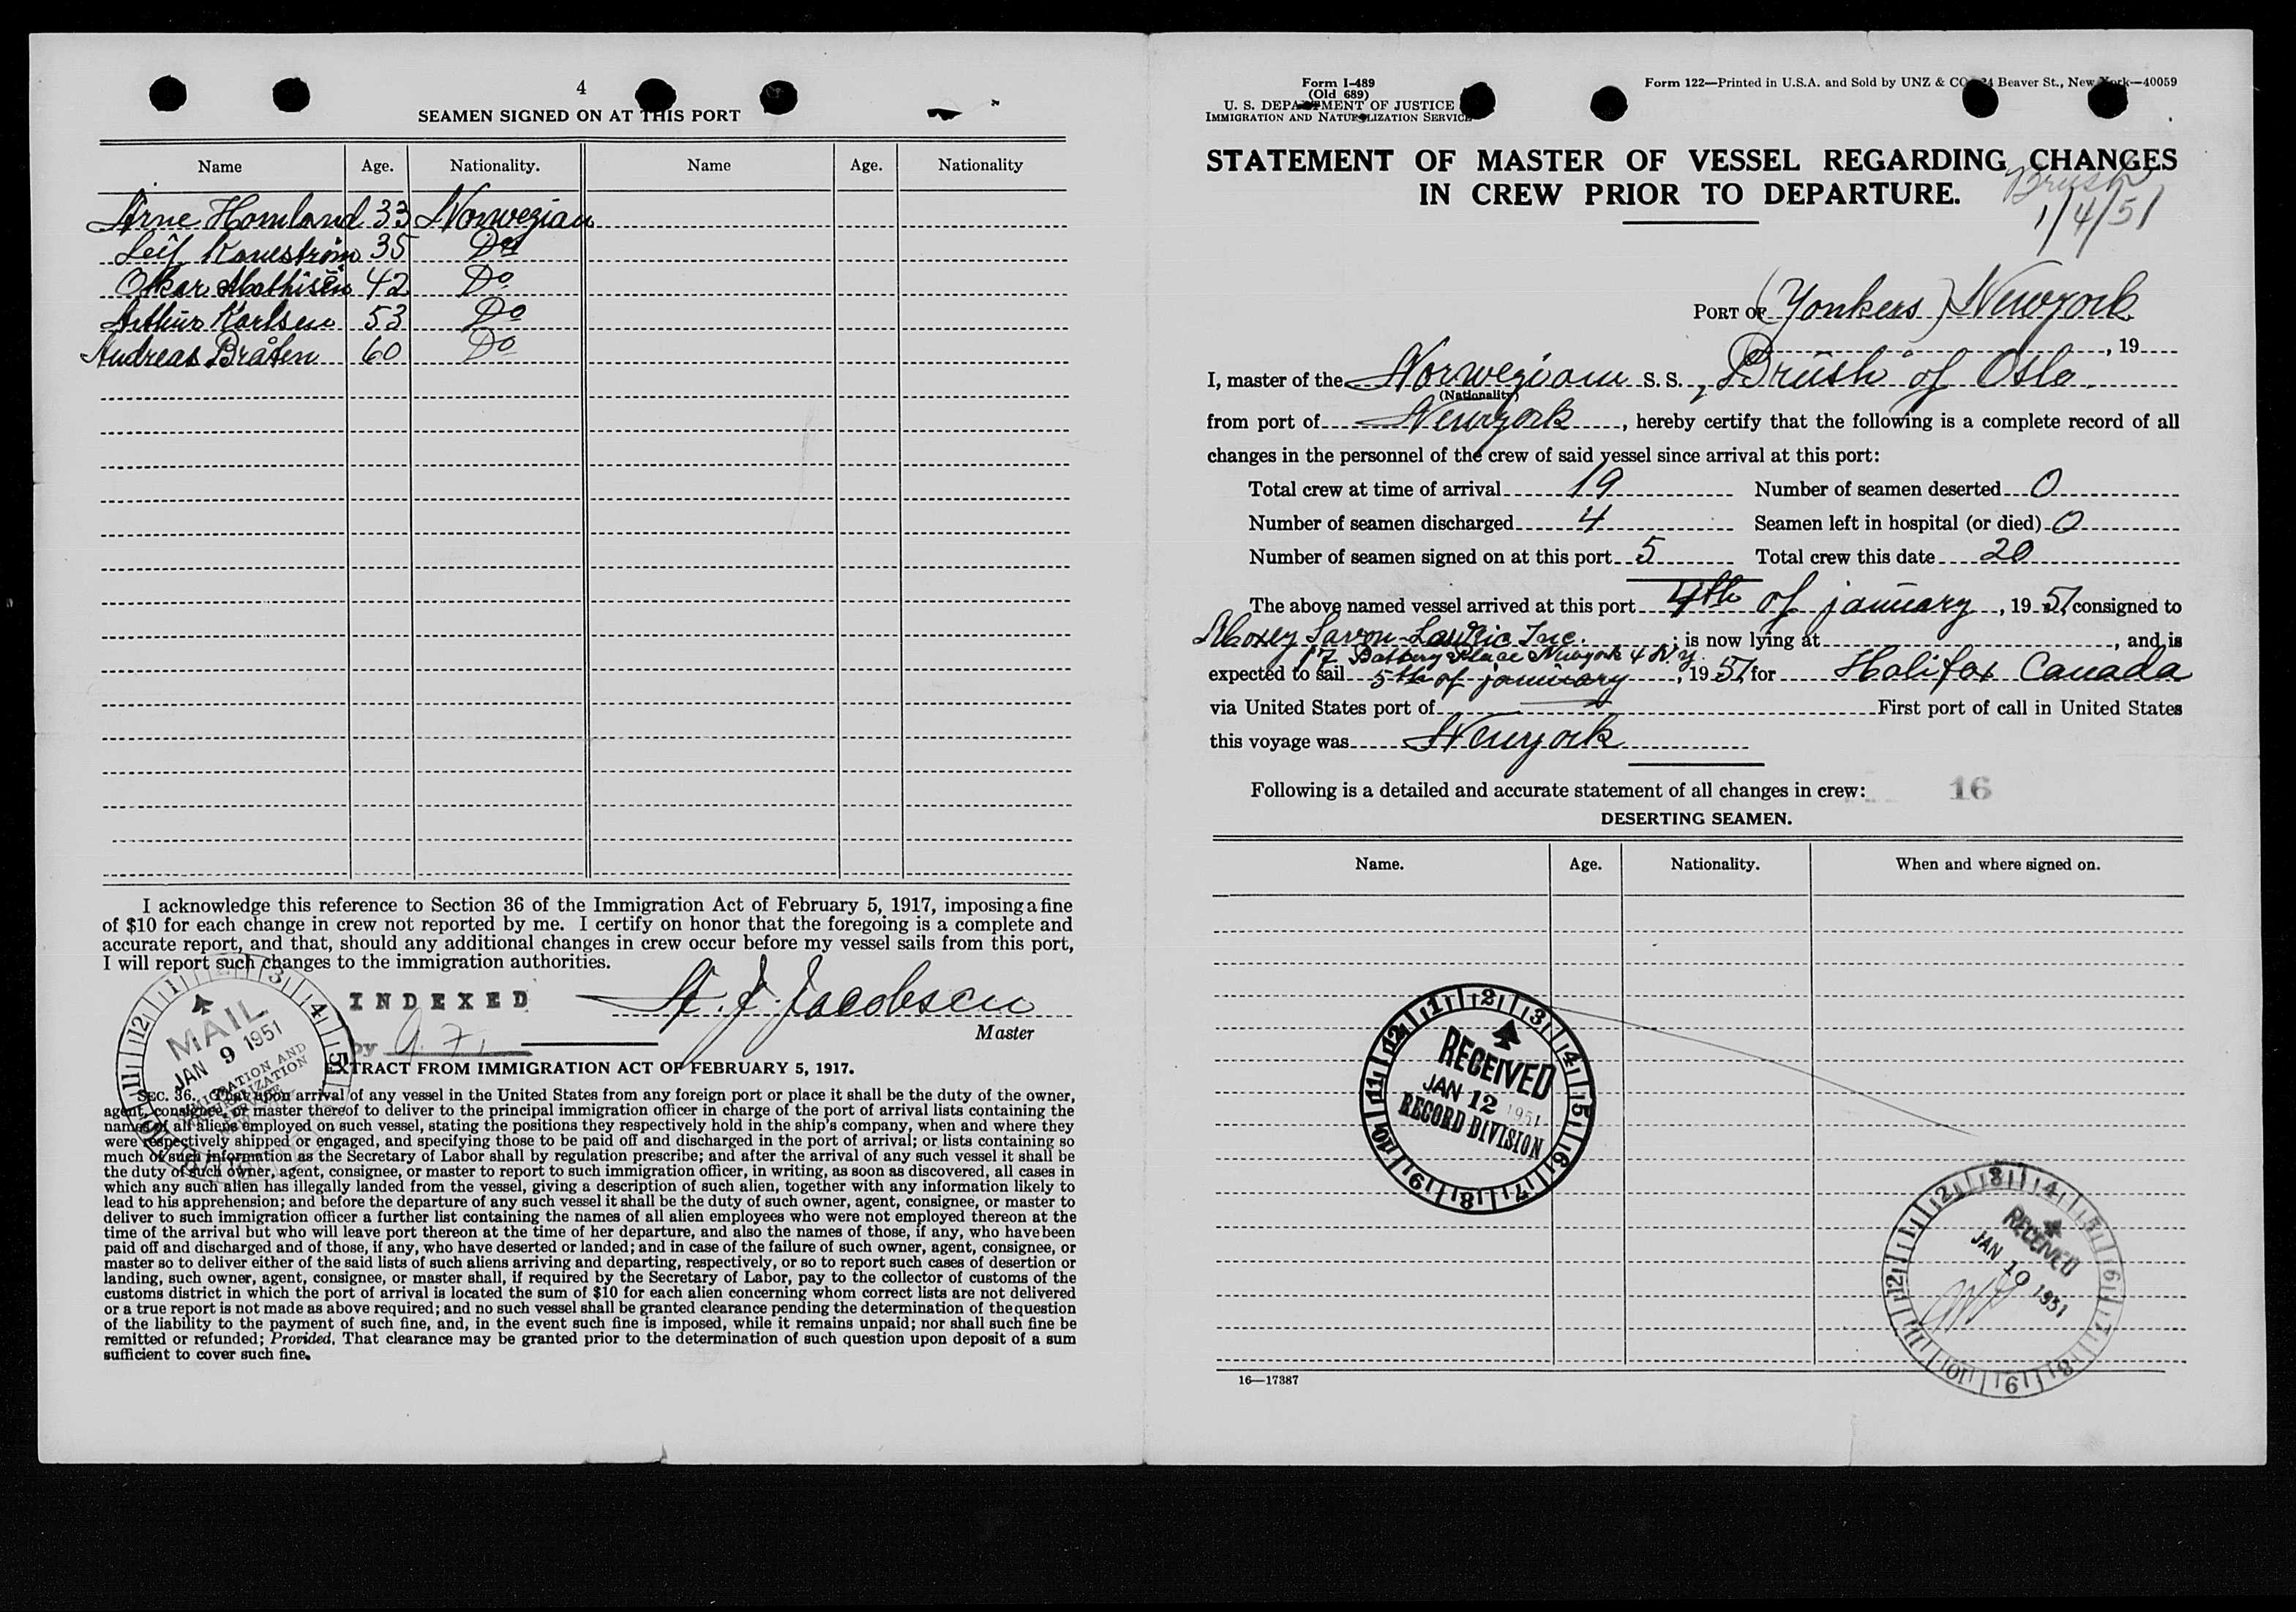 4
SEAMEN SIGNED ON AT THIS PORT
Name Age. Nationality. Name Age. Nationality
Arne Homland 33 Norwegian
Leif 35 Do
Oskar Mathisen 42 Do
Arthur Karlsen 53 Do
Andreas Bråten 60 Do
I acknowledge this reference to Section 36 of the Immigration Act of February 5, 1917, imposing a fine
of $10 for each change in crew not reported by me. I certify on honor that the foregoing is a complete and
accurate report, and that, should any additional changes in crew occur before my vessel sails from this port,
I will report such changes to the immigration authorities.
INDEXED
by
Jacobsen
Master
MAIL
JAN 9 1951
IMMIGRATION AND
NATURALIZATION
SERVICE
EXTRACT FROM IMMIGRATION ACT OF FEBRUARY 5, 1917.
SEC. 36. That upon arrival of any vessel in the United States from any foreign port or place it shall be the duty of the owner,
agent, consignee, or master thereof to deliver to the principal immigration officer in charge of the port of arrival lists containing the
names of all aliens employed on such vessel, stating the positions they respectively hold in the ship's company, when and where they
were respectively shipped or engaged, and specifying those to be paid off and discharged in the port of arrival; or lists containing so
much of such information as the Secretary of Labor shall by regulation prescribe; and after the arrival of any such vessel it shall be
the duty of such owner, agent, consignee, or master to report to such immigration officer, in writing, as soon as discovered, all cases in
which any such alien has illegally landed from the vessel, giving a description of such alien, together with any information likely to
lead to his apprehension; and before the departure of any such vessel it shall be the duty of such owner, agent, consignee, or master to
deliver to such immigration officer a further list containing the names of all alien employees who were not employed thereon at the
time of the arrival but who will leave port thereon at the time of her departure, and also the names of those, if any, who have been
paid off and discharged and of those, if any, who have deserted or landed; and in case of the failure of such owner, agent, consignee, or
master so to deliver either of the said lists of such aliens arriving and departing, respectively, or so to report such cases of desertion or
landing, such owner, agent, consignee, or master shall, if required by the Secretary of Labor, pay to the collector of customs of the
customs district in which the port of arrival is located the sum of $10 for each alien concerning whom correct lists are not delivered
or a true report is not made as above required; and no such vessel shall be granted clearance pending the determination of the question
of the liability to the payment of such fine, and, in the event such fine is imposed, while it remains unpaid; nor shall such fine be
remitted or refunded; Provided, That clearance may be granted prior to the determination of such question upon deposit of a sum
sufficient to cover such fine.
Form I-489
(Old 689)
U. S. DEPARTMENT OF JUSTICE
IMMIGRATION AND NATURALIZATION SERVICE
Form 122—Printed in U.S.A. and Sold by UNZ & CO 24 Beaver St., New York—40059
STATEMENT OF MASTER OF VESSEL REGARDING CHANGES
IN CREW PRIOR TO DEPARTURE.
Brush
1/4/51
PORT OF (Yonkers) Newyork
, 19
I, master of the Norwegian S. S. Brush of Oslo
(Nationality)
from port of Newyork, hereby certify that the following is a complete record of all
changes in the personnel of the crew of said vessel since arrival at this port:
Total crew at time of arrival 19 Number of seamen deserted 0
Number of seamen discharged 4 Seamen left in hospital (or died) 0
Number of seamen signed on at this port 5 Total crew this date 20
The above named vessel arrived at this port 4th of january, 19 51 consigned to
Inc. ; is now lying at , and is
17 Battery Place Newyork 4 N.y.
expected to sail 5th of january, 19 51, for Halifax Canada
via United States port of First port of call in United States
this voyage was Newyork
Following is a detailed and accurate statement of all changes in crew: 16
DESERTING SEAMEN.
Name. Age. Nationality. When and where signed on.
RECEIVED
JAN 12 1951
RECORD DIVISION
RECEIVED
JAN 10 1951
16—17387